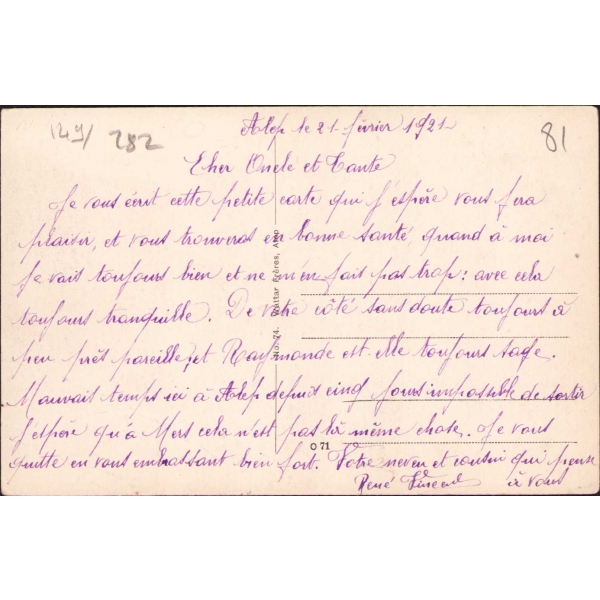 1249/ 282
81
Alep le 21 février 1921
Cher Oncle et Tante
Je vous écrit cette petite carte qui j'espère vous fera
plaisir, et vous trouveras en bonne santé, quand à moi
Je vait toujours bien et ne m'en fait pas trop: avec cela
toujours tranquille. De votre côté sans doute toujours à
peu près pareille, et Raymonde est-elle toujours sage.
Mauvait temps ici à Alep depuis cinq jours impossible de sortir
J'espère qu'à Mers cela n'est pas la même chose. Je vous
quitte en vous embrassant bien fort. Votre neveu et cousin qui pense
René à vous
No. 24. Wattar Frères, Alep
O 71